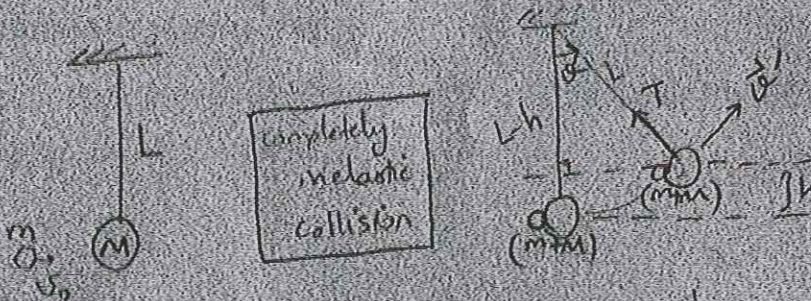 L
m
v₀
M
completely
inelastic
collision
L-h
L
T
v'
(m+M)
(m+M)
h